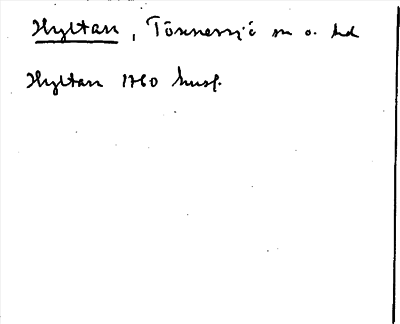 Hyltan, Tönnersjö sn o. hd
Hyltan 1760 husf.